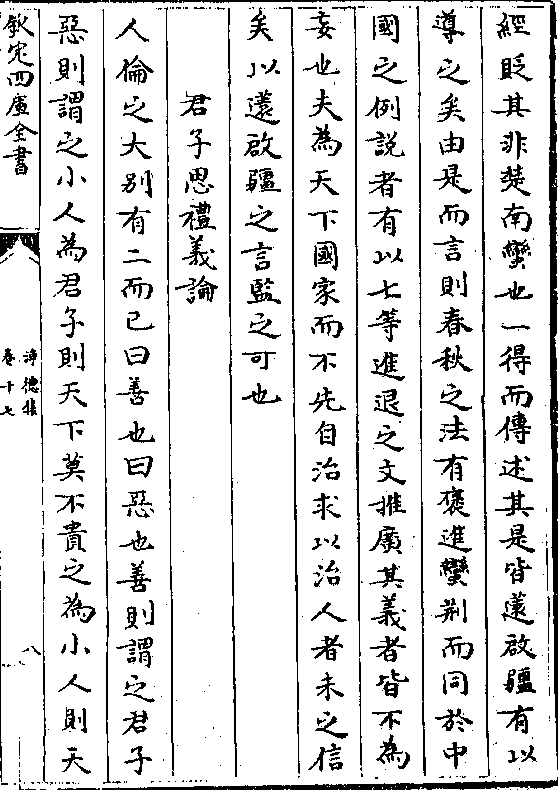 經貶其非楚南蠻也一得而傳述其是皆薳啟疆有以
導之矣由是而言則春秋之法有褒進蠻荆而同於中
國之例説者有以七等進退之文推廣其義者皆不為
妄也夫為天下國家而不先自治求以治人者未之信
矣以薳啟疆之言監之可也
君子思禮義論
人倫之大别有二而已曰善也曰惡也善則謂之君子
惡則謂之小人為君子則天下莫不貴之為小人則天
欽定四庫全書
淨德集
卷十七
八